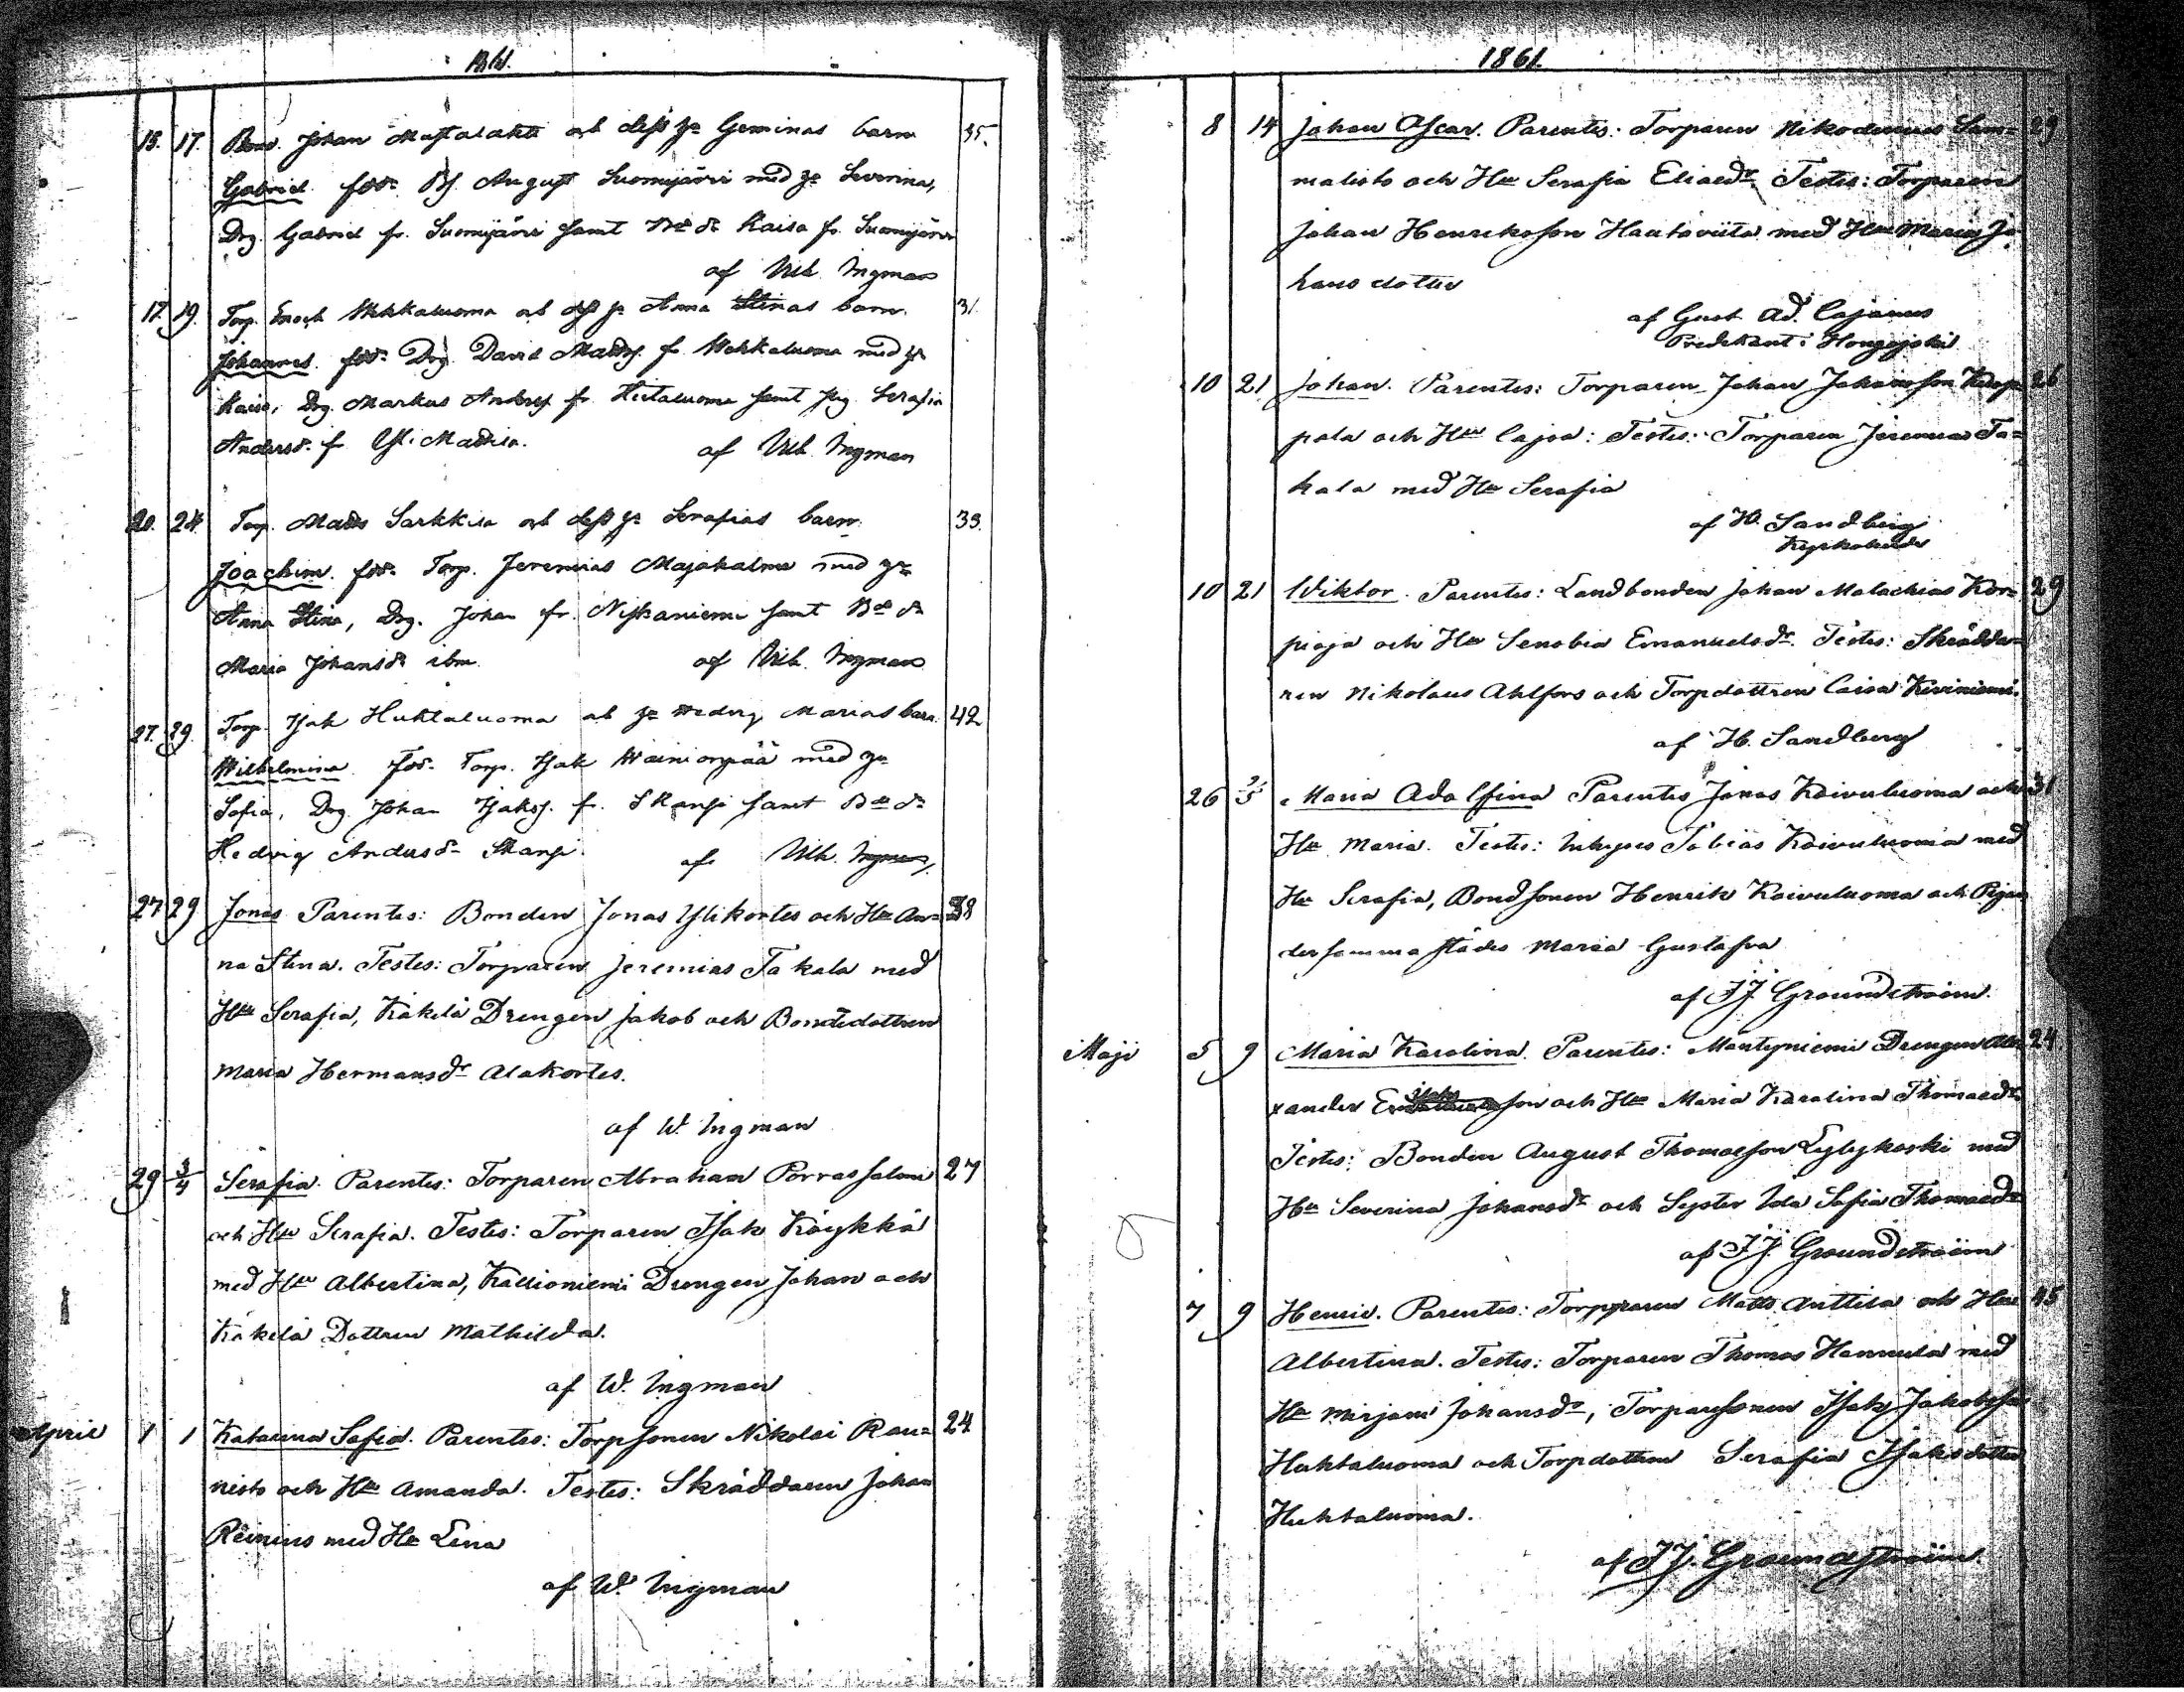 1861.
15. 17. Bond. Johan Mustalahti och dess h:u Geminas barn 35.
Gabriel. fdd: Bs. August Suomijärvi med h:u Severina,
Drg. Gabriel fr. Suomijärvi samt Bd dr Kaisa fr. Suomijärvi
af Vilh. Ingman
17. 19. Torp. Enoch Wehkaluoma och dess h:u Anna Stinas barn. 31
Johannes. fdd: Drg. David Matts. fr. Wehkaluoma med h:u
Kaisa, Drg. Markus Anders. fr. Hietaluoma samt pig. Serafia
Andersd. fr. Madisa.
af Vilh. Ingman
20. 24. Torp. Matts Sarkkila och dess h:u Serafias barn. 33.
Joachim. fdd: Torp. Jeremias Majakalma med h:u
Anna Stina, Drg. Johan fr. Niskaniemi samt Bd dr
Maria Johansdr ibm.
af Vilh. Ingman
27. 29. Torp. Isak Huhtaluoma och h:u Hedvig Marias barn. 42
Wilhelmina. fdd: Torp. Isak Wainionpää med h:u
Sofia, Drg. Johan Isaks. fr. Skansi samt Bd dr
Hedvig Andersdr Skansi.
af Vilh. Ingman.
27 29 Jonas Parentes: Bonden Jonas Ylikortes och H:u An= 38
na Stina. Testes: Torparen Jeremias Takala med
H:u Serafia, Käkelä Drengen Jakob och Bondedottren
Maria Hermansdr Alakortes.
af W. Ingman
29 3/4 Serafia. Parentes: Torparen Abraham Porrassalmi 27
och H:u Serafia. Testes: Torparen Isak Köykkä
med H:u Albertina, Kallioniemi Drengen Johan och
Käkelä Dottren Mathilda.
af W. Ingman
April 1 1 Katarina Sofia. Parentes: Torpsonen Nikolai Rau= 24
nisto och H:u Amanda. Testes: Skräddaren Johan
Reinius med H:u Lina
af W. Ingman
1861.
8 14 Johan Oscar. Parentes: Torparen Nikodemus Sam= 29
malisto och H:u Serafia Eliaedr. Testes: Torparen
Johan Henriksson Hautaviita med H:u Maria Jo
hans dotter
af Gust. Ad. Cajanus
Predikant i Hongojoki
10 21 Johan. Parentes: Torparen Johan Johansson 26
pala och H:u Cajsa: Testes: Torparen Jeremias Ta=
kala med H:u Serafia
af H. Sandberg
Kyrkoherde
10 21 Wiktor. Parentes: Landbonden Johan Malachias Kor= 29
pioja och H:u Senobia Emanuelsdr. Testes: Skrädda=
ren Nikolaus Ahlfors och Torpdottren Caisa Kiviniemi.
af H. Sandberg
26 5 Maria Adolfina Parentes Jonas Koivuluoma och 31
H:u Maria. Testes: Inhyses Tobias Koivuluoma med
H:u Serafia, Bondsonen Henrik Koivuluoma och Pigan
dersammastädes Maria Gustafva
af J J Groundstroem.
Maji 5 9 Maria Karolina. Parentes: Mantyniemi Drengen Alex 24
xander son och H:u Maria Karolina Thomaedr
Testes: Bonden August Thomaeson Lylykoski med
H:u Severina Johansdr och Syster Ida Sofia Thomaedr
af J J Groundstroem
7 9 Henric. Parentes: Torpparen Matts Anttila och H:u 45
Albertina. Testes: Torparen Thomas Hannula med
H:u Mirjami Johansdr, Torparsonen Isak Jakobsson
Huhtaluoma och Torpdottren Serafia Isaksdotter
Huhtaluoma.
af J J. Groundstroem.